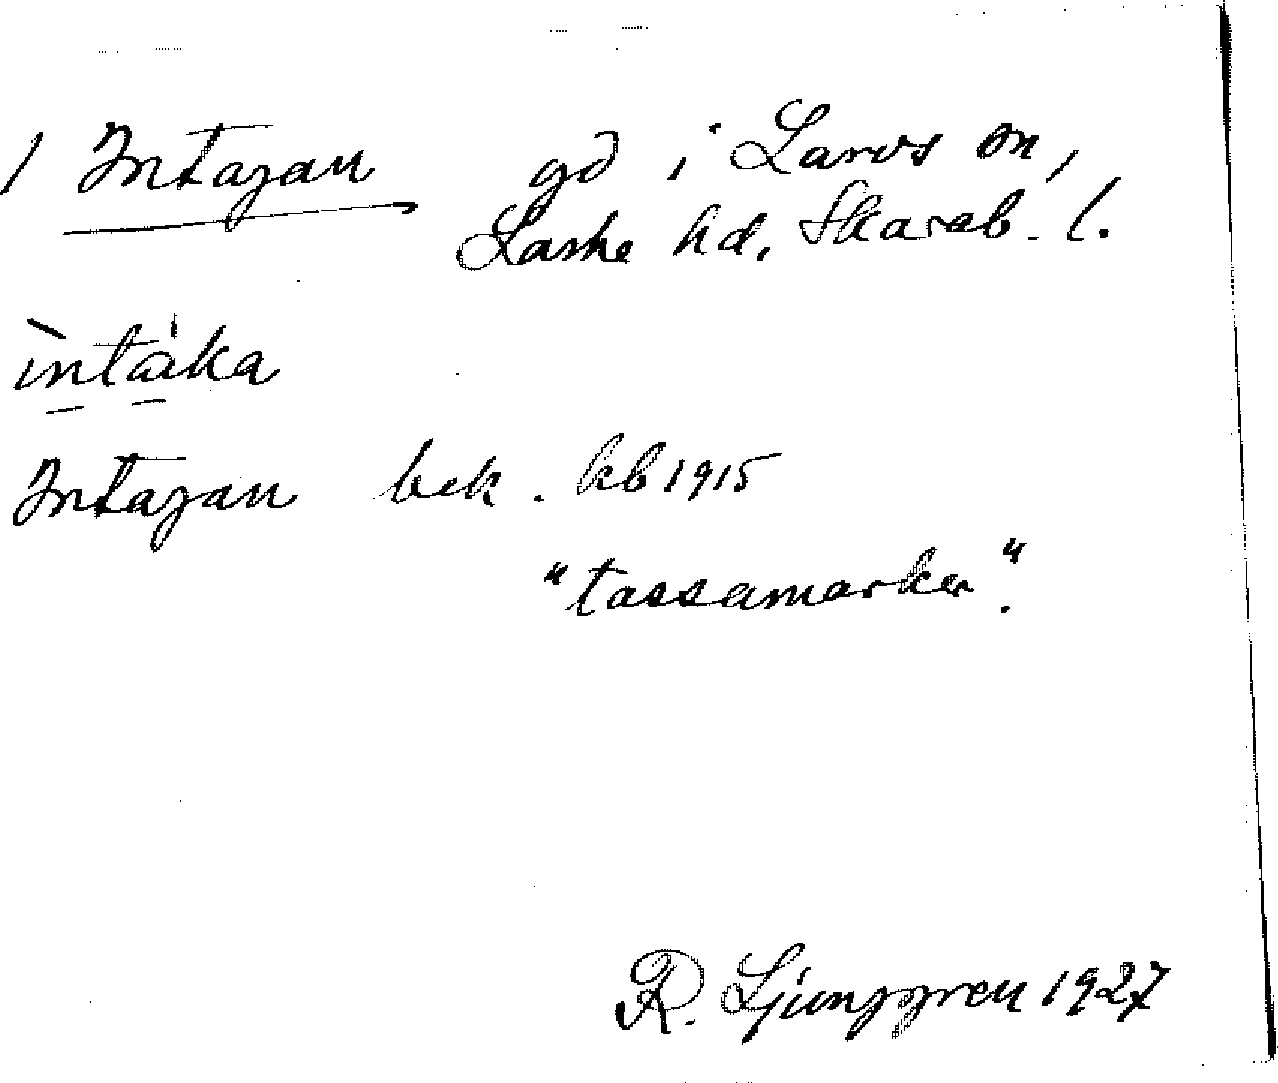 1 Intagan gd i Larvs sn,
Laske hd. Skarab. l.
ìntàka
Intagan bek. kb 1915
"tassamarker".
R. Ljunggren 1927